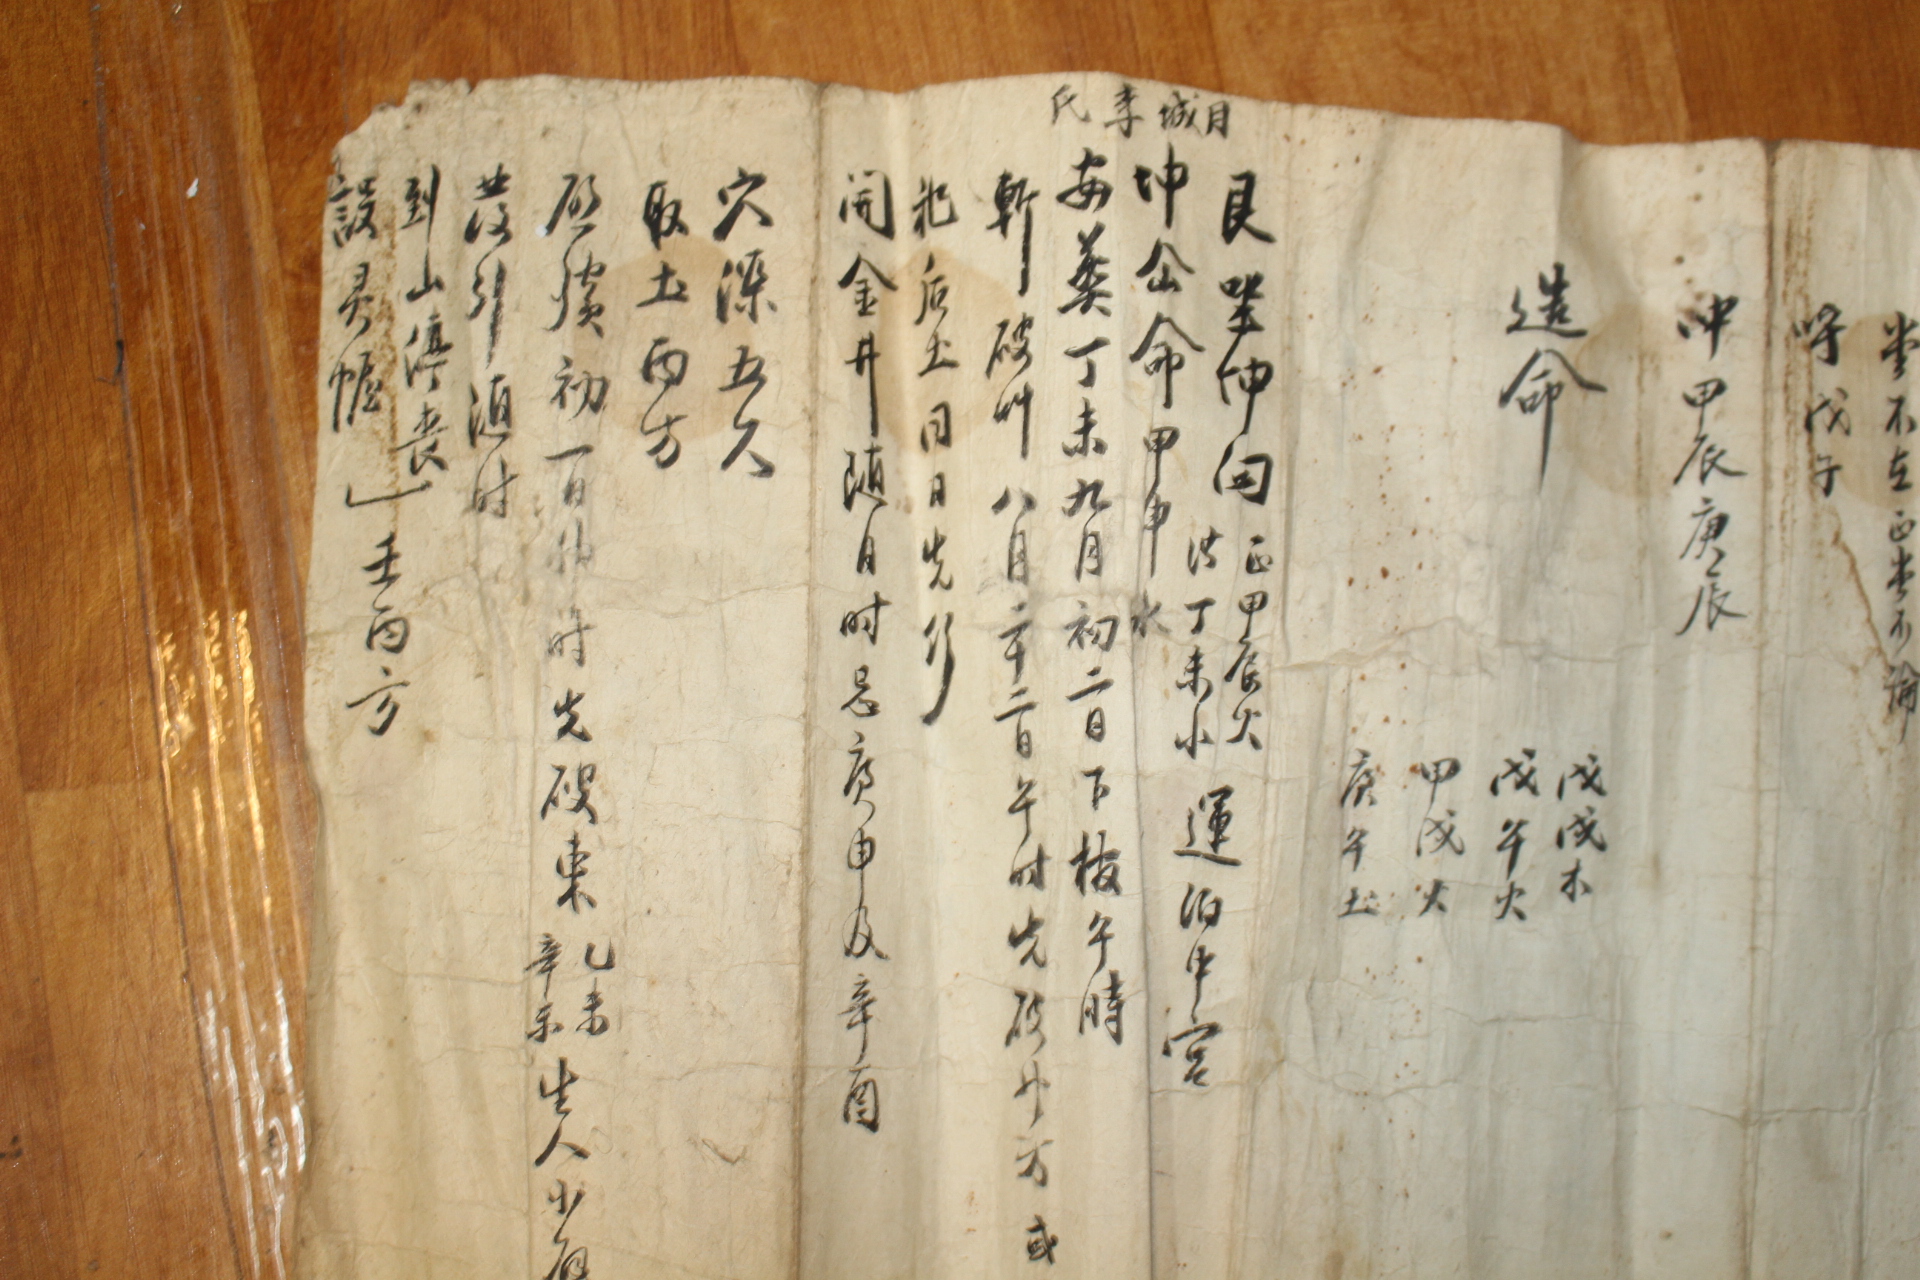 坐不在正坐不論
呼戊午
冲甲辰庚辰
造命
戊戌木
戊午火
甲戌火
庚午土
艮坐坤向 正甲辰火
洪丁未水 運泊中宮
月城李氏
坤命甲申水
安葬丁未九月初二日下棺午時
斬破艸八月二十二日午时先破 方或
祀后土同日先行
開金井随日时忌庚申及辛酉
穴深五尺
取土丙方
啓殯初一日 时先破東 乙未
辛未 生人小
發引随时
到山停喪
設灵幄 壬丙方